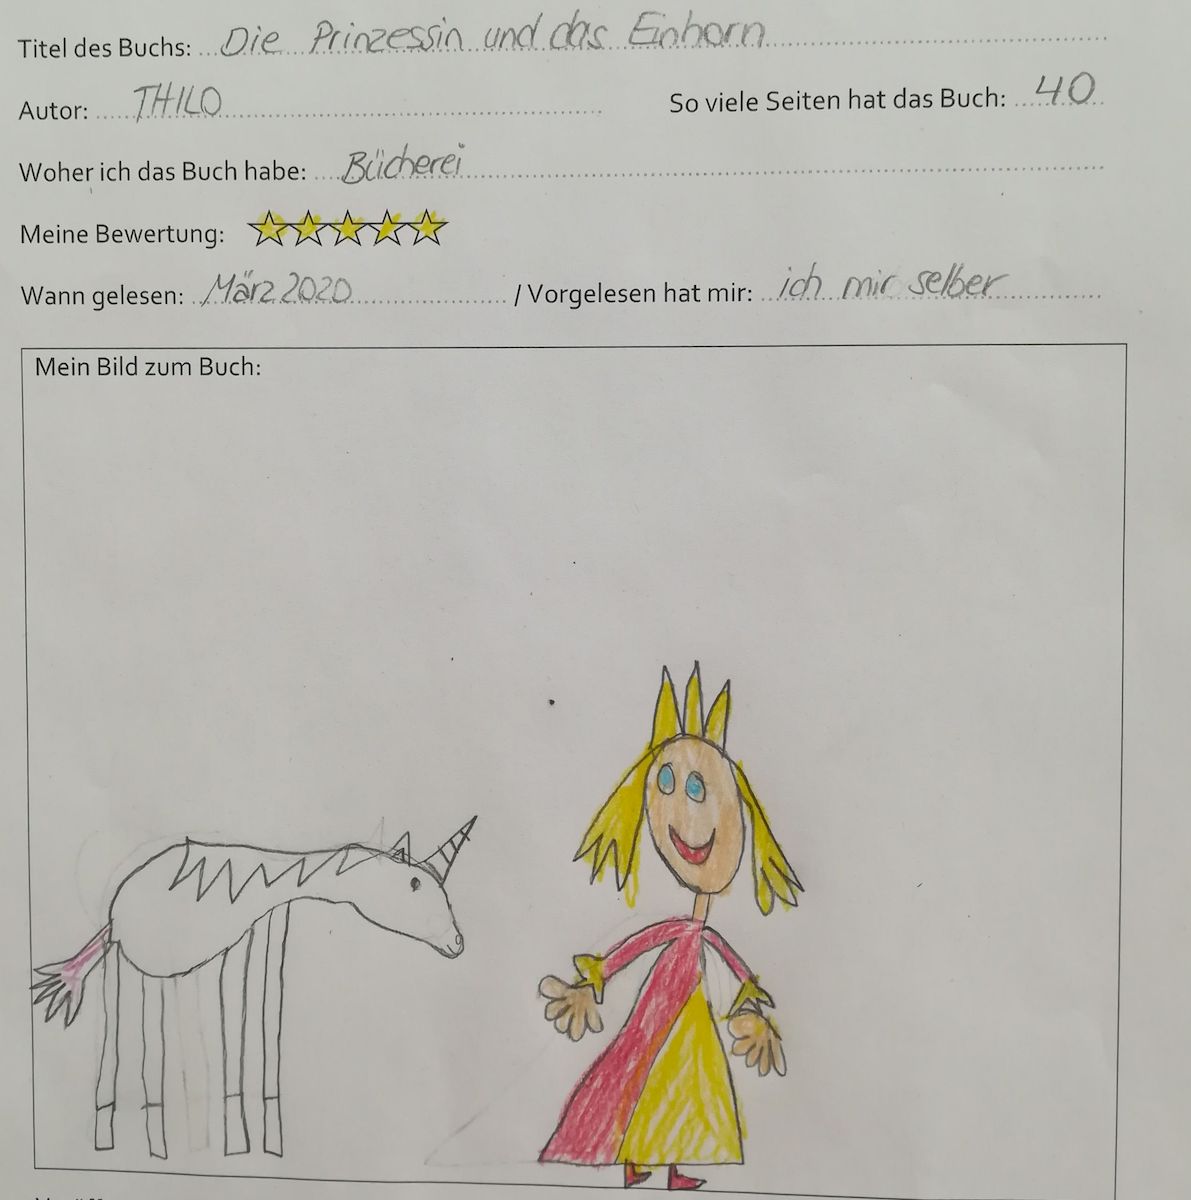 Titel des Buchs: Die Prinzessin und das Einhorn
Autor: THILO So viele Seiten hat das Buch: 40
Woher ich das Buch habe: Bücherei
Meine Bewertung:
Wann gelesen: März 2020 / Vorgelesen hat mir: ich mir selber
Mein Bild zum Buch: